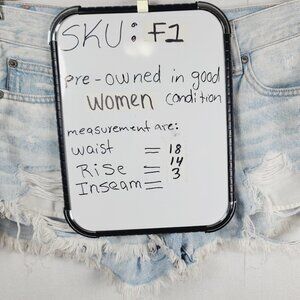 SKU: F1
pre-owned in good
women condition
measurement are:
waist = 18
Rise = 14
Inseam = 3